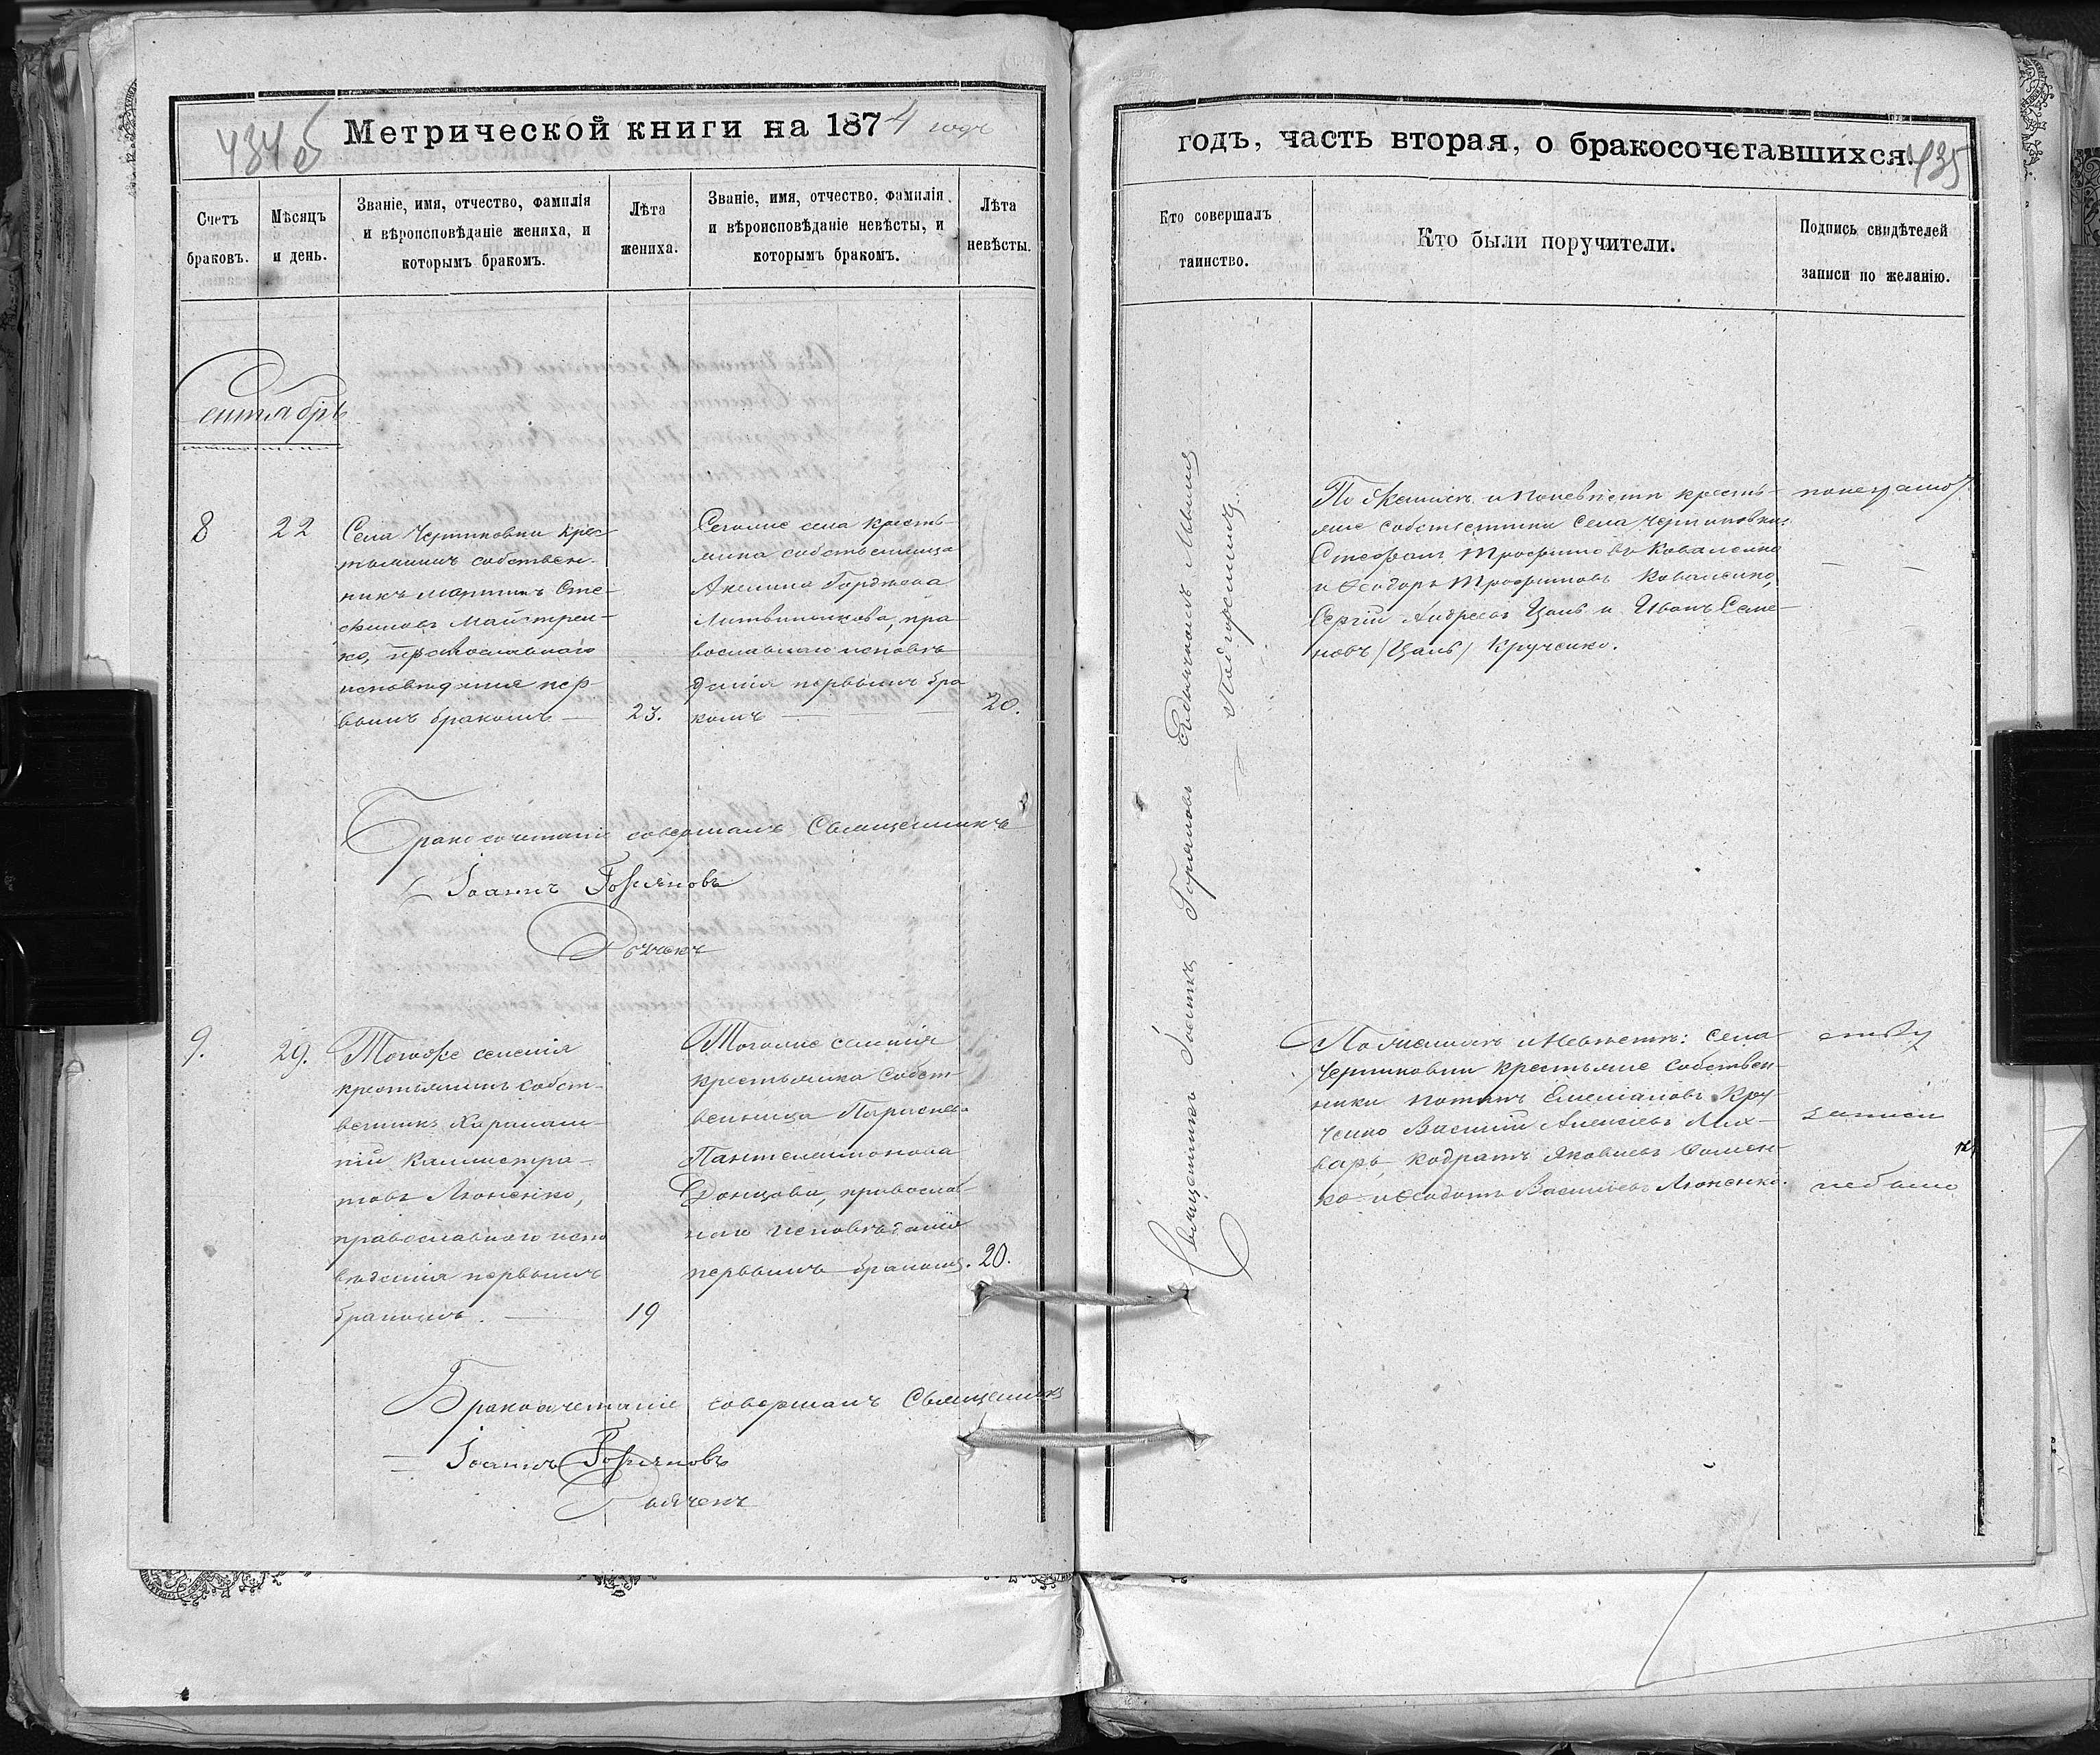 434об
Метрической книги на 1874 годъ
Счетъ
браковъ.
Мѣсяцъ
и день.
Званіе, имя, отчество, фамилія
и вѣроисповѣданіе жениха, и
которымъ бракомъ.
Лѣта
жениха.
Званіе, имя, отчество, фамилія
и вѣроисповѣданіе невѣсты, и
которымъ бракомъ.
Лѣта
невѣсты.
Сентябрь
8
22
Села Черниковки крес
тьянинъ собствен-
никъ Мартинъ Сте-
фановъ Майстрен-
ко, православнаго
исповѣданія пер-
вымъ бракомъ —
23.
села кресть-
янка собственница
Акилина Гордѣева
Литвиненкова, пра-
вославнаго исповѣ
данія первымъ бра
комъ —
20.
Бракосочетаніе совершалъ Священникъ
Іоаннъ Горяновъ
9.
29.
Тогоже селенія
крестьянинъ собст-
венникъ Харалам-
пій Каллистра-
товъ Люненко,
православнаго испо
вѣданія первымъ
бракомъ. —
19
Тогоже селенія
крестьянка собст-
венница Параскева
Пантелеимонова
Донцова, православ-
наго исповѣданія
первымъ бракомъ.
20.
Бракосочетаніе совершалъ Священникъ
Іоаннъ Горяновъ
годъ, часть вторая, о бракосочетавшихся.
435
Кто совершалъ
таинство.
Кто были поручители.
Подпись свидѣтелей
записи по желанію.
Священникъ Іоаннъ Горяновъ
По Женихѣ и по невѣстѣ кресть-
яне собственники села Черниковки
Стефанъ Трофимовъ Коваленко
и Ѳеодоръ Трофимовъ Коваленко,
Сергій Андреевъ Цапъ и Иванъ Семе-
новъ (Цапъ) Крученко.
По женихѣ и Невѣстѣ: села
Черниковки крестьяне собствен-
ники Потапъ Емеліановъ Кру-
ченко Василій Алексѣевъ Лих-
варь, Кодратъ Яковлевъ Фомен-
ко и Ѳеодотъ Васильевъ Люненко.
записи
небыло